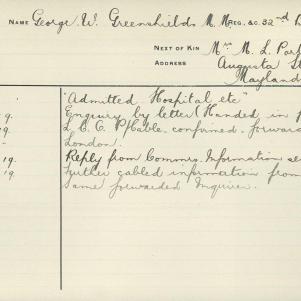 NAME George W. Greenshields M. M REG. &C. 32nd
NEXT OF KIN Mrs M. L. Par
ADDRESS Augusta St
Mayland
"Admitted Hospital etc"
9. Enquiry by letter Handed in
19. L. C. C. P/Cable. confirmed. forward
London.
19. Reply from Commrs. Information se
19 Further cabled information from
Same forwarded Inquirer.